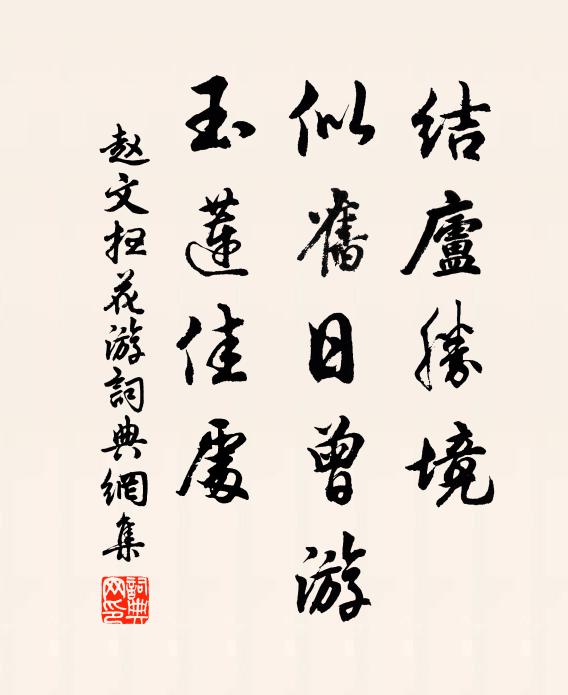 結廬勝境
似舊日曾游
玉蓮佳處
赵文扫花游詞典網集
詞典网印